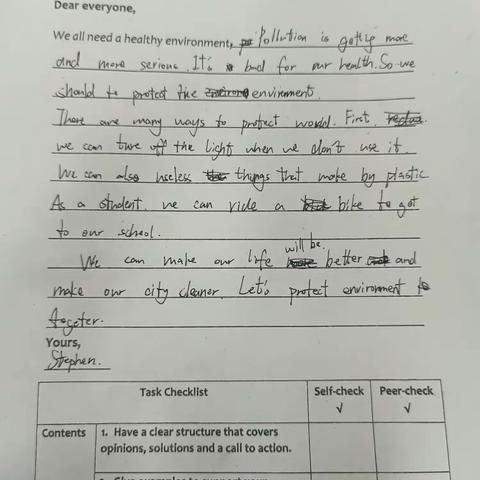 Dear everyone,
We all need a healthy environment, Pollution is getting more
and more serious. It's bad for our health. So we
should to protect the environment.
There are many ways to protect world. First,
we can ture off the light when we don't use it.
We can also useless things that make by plastic
As a student, we can ride a bike to get
to our school.
will be
We can make our life better and
make our city cleaner. Let's protect environment to
togeter.
Yours,
Stephen.
Task Checklist
Self-check
√
Peer-check
√
Contents
1. Have a clear structure that covers
opinions, solutions and a call to action.